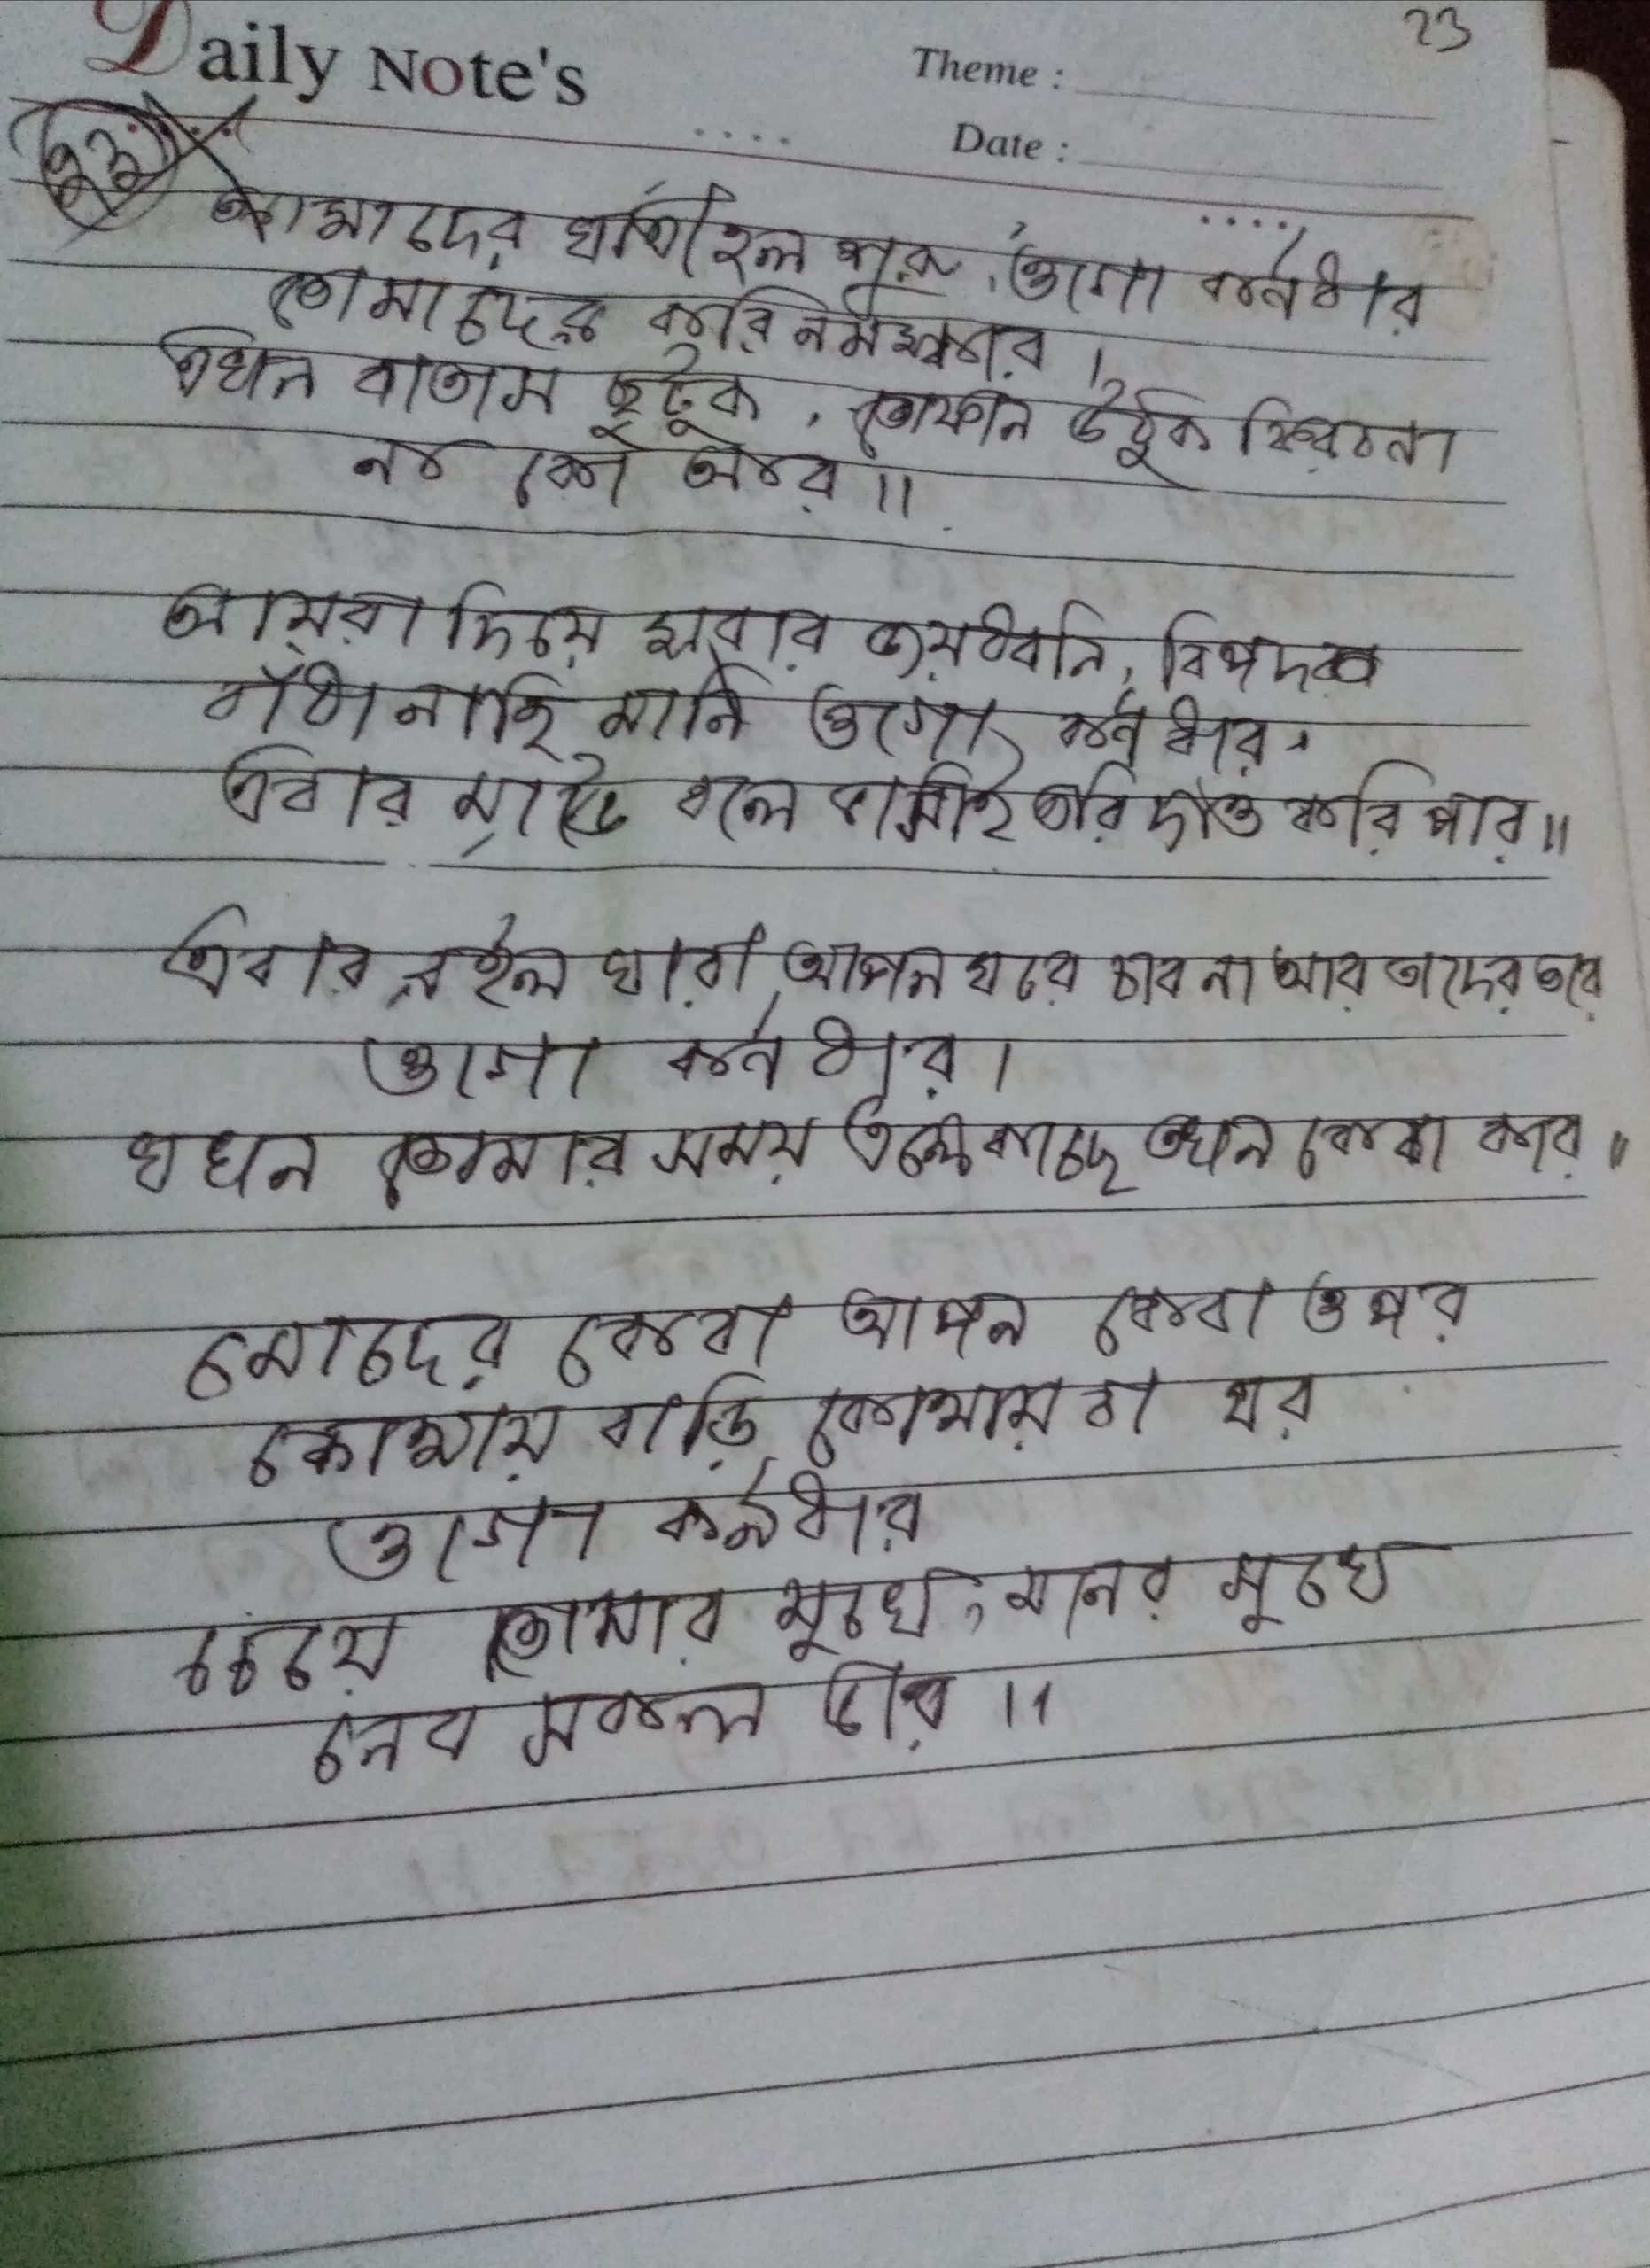 23
Daily Note's
Theme :
Date :
আমাদের যাত্রা হল শুরু, ওগো কর্নধার
তোমাদের করি নমস্কার।
এখন বাতাস ছুটুক, তোফান উঠুক ফিরবনা
নক কো আর॥
আমরা দিয়ে সবার জয়ধ্বনি, বিপদকে
বাঁধা নাহি মানি ওগো কর্নধার,
এবার মাভৈ বলে ভাসাই তরি দাও করি পার॥
এবার রইল যারা আপন ঘরে চাবনা আর তাদের তরে
ওগো কর্নধার।
যখন তোমার সময় এল কাছে তখন কেবা কার॥
মোদের কেবা আপন কেবা ওপর
কোথায় বাড়ি কোথায় বা ঘর
ওগো কর্নধার
চেয়ে তোমার মুখে, মনের সুখে
নেব সকল ভার॥